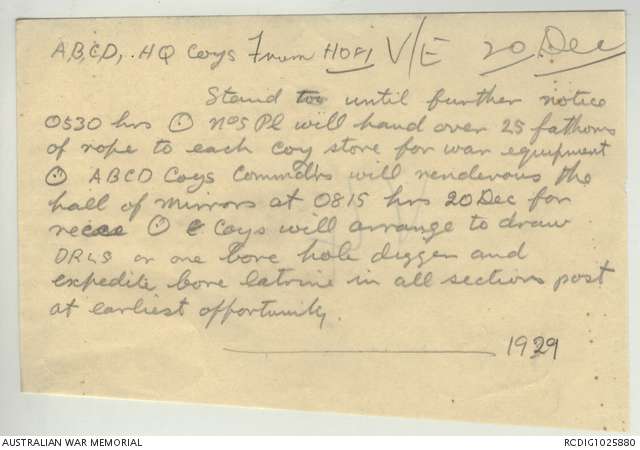 A,B,C,D, HQ Coys From HOFI V/E 20 Dec
Stand too until further notice
0530 hrs ⊙ No5 Pl will hand over 25 fathoms
of rope to each coy store for war equipment
⊙ ABCD Coys Commdrs will rendevous the
hall of mirrors at 0815 hrs 20 Dec for
⊙ Coys will arrange to draw
or one bore hole digger and
expedite bore latrine in all sections post
at earliest opportunity.
1929
AUSTRALIAN WAR MEMORIAL RCDIG1025880